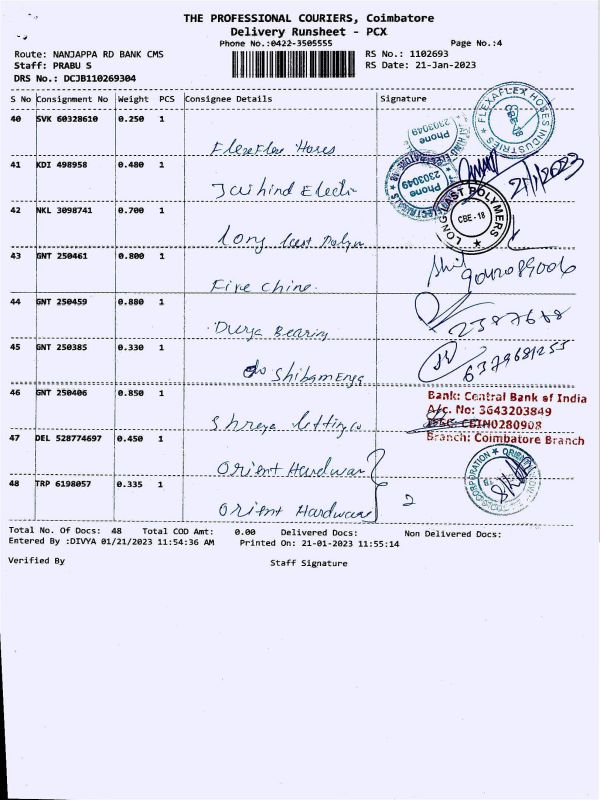 THE PROFESSIONAL COURIERS, Coimbatore
Delivery Runsheet - PCX
Phone No.:0422-3505555
Page No.:4
Route: NANJAPPA RD BANK CMS
RS No.: 1102693
Staff: PRABU S
RS Date: 21-Jan-2023
DRS No.: DCJB110269304
S No Consignment No Weight PCS Consignee Details Signature
40 SVK 60328610 0.250 1
Flexflex Hoses
FLEXAFLEX HOSES INDUSTRIES CBE-18
Phone 2303049
41 KDI 498958 0.480 1
Jaihind Electri
Phone 2303049
21/1/2023
42 NKL 3098741 0.700 1
Long last Polym
LONG LAST POLYMERS CBE-18
43 GNT 250461 0.800 1
Five Chine.
9042089006
44 GNT 250459 0.880 1
Durga Bearing
2387688
45 GNT 250385 0.330 1
do Shibam Enga
6379681255
46 GNT 250406 0.850 1
Shreya
Bank: Central Bank of India
A/c. No: 3643203849
IFSC: CBIN0280908
Branch: Coimbatore Branch
47 DEL 528774697 0.450 1
Orient Hardwar
48 TRP 6198057 0.335 1
Orient Hardware
2
Total No. Of Docs: 48 Total COD Amt: 0.00 Delivered Docs: Non Delivered Docs:
Entered By :DIVYA 01/21/2023 11:54:36 AM Printed On: 21-01-2023 11:55:14
Verified By
Staff Signature